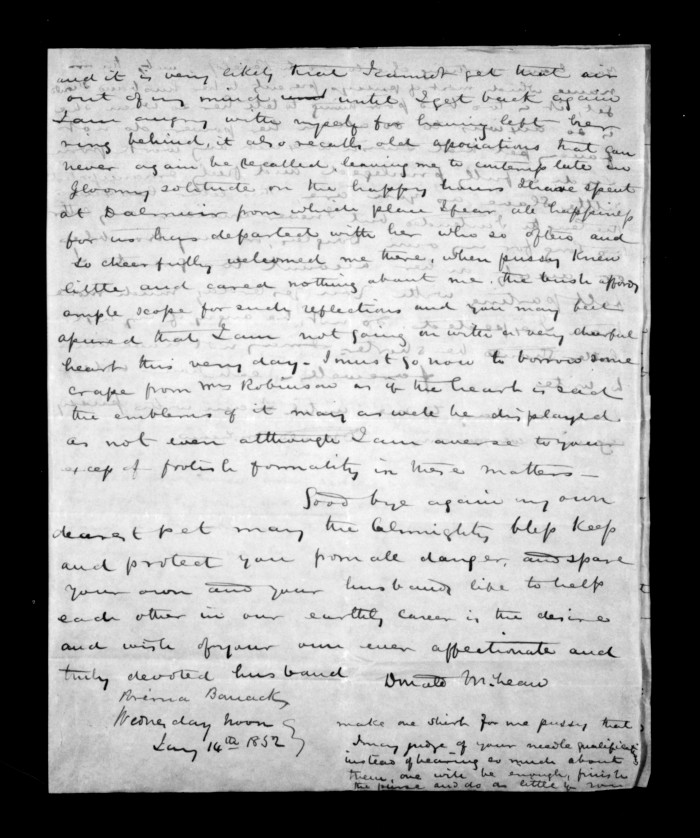 and it is very likely that I cannot get that air
out of my mind until I get back again
I am angry with myself for having left her
ring behind, it also recalls old associations that can
never again be recalled, leaving me to contemplate in
gloomy solitude on the happy hours I have spent
at Dalmuir from which place I fear all happiness
for us has departed with her who so often and
so cheerfully welcomed me there, when pussy knew
little and cared nothing about me. the bush affords
ample scope for such reflections and you may feel
assured that I am not going on with a very cheerful
heart this very day - I must go now to borrow some
crape from Mrs Robinson as if the heart is sad
the emblems of it may as well be displayed
as not even although I am averse to
of foolish formality in these matters -
Good bye again my own
dearest pet may the Almighty bless keep
and protect you from all danger, and spare
your own and your husbands life to help
each other in our earthly career is the desire
and wish of your own ever affectionate and
truly devoted husband Donald McLean
Barrack
Wednesday noon
Jany 14th 1852
make one shirt for me pussy that
I may judge of your needle qualifications
instead of hearing so much about
them, one will be enough, finish
the purse and do as little you